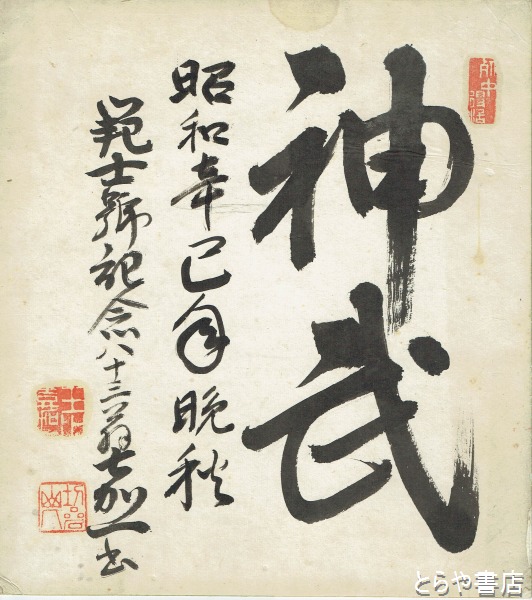 神武
昭和辛巳年晩秋
範士號記念八十三翁嘉一書
とらや書店